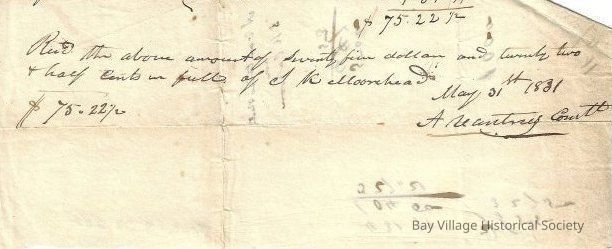 $ 75.22½
Recd the above amount of Seventy five dollars and twenty two
& half Cents in full of J K Moorehead
May 31st 1831
$ 75.22½
Bay Village Historical Society